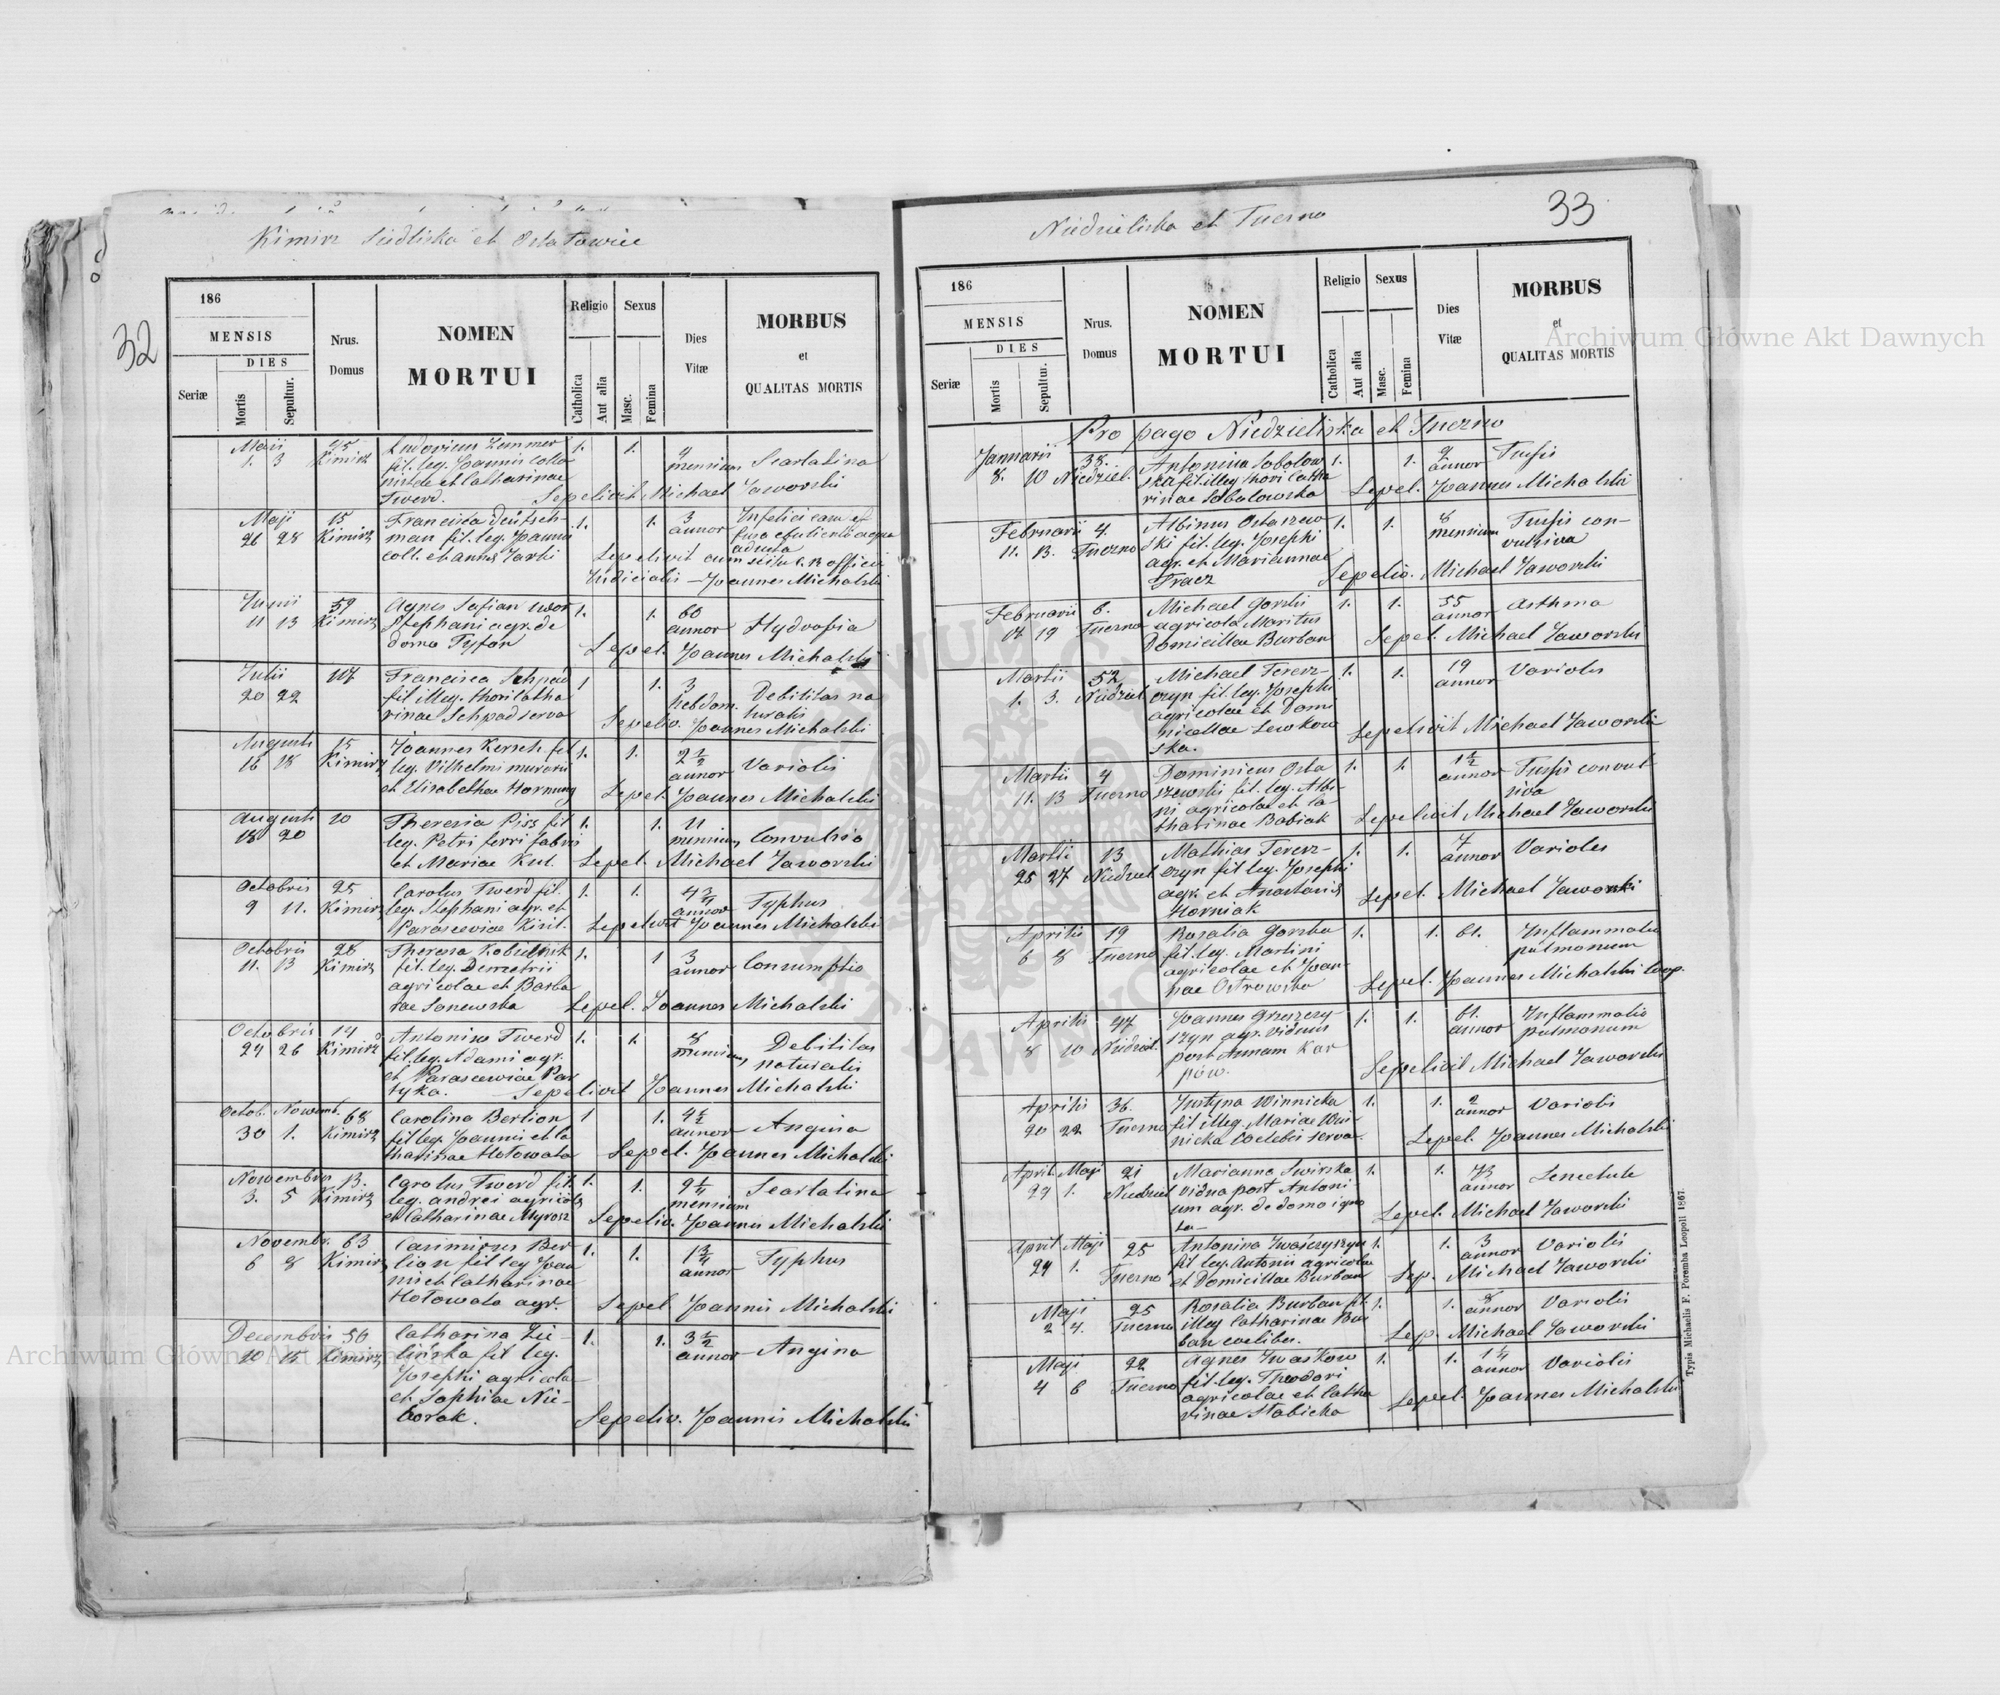 32
Kimirz Siedliska et Ostałowice
186
MENSIS
DIES
Seriæ
Mortis
Sepultur.
Nrus.
Domus
NOMEN
MORTUI
Religio
Catholica
Aut alia
Sexus
Masc.
Femina
Dies
Vitæ
MORBUS
et
QUALITAS MORTIS
Maji 1. 3
Kimirz
fil. leg. Joannis colo
nistae et Catharinae
Twerd.
1. 1.
9 mensium
Scarlatina
Sepelivit Michael Jaworski
Maji 26 28
15 Kimirz
Francisca Deutsch-
man fil. leg. Joannis
coll. et Annae
1. 1.
3 annor
Sepelivit cum scitu
officii
Judicialis – Joannes Michalski
Junii 11 13
59 Kimirz
Agnes Safian uxor
Stephani agr. de
domo Tyfor
1. 1.
60 annor
Hydropia
Sepel. Joannes Michalski
Julii 20 22
107
Francisca Schpad
fil illeg. thori Catha
rinae Schpad serva
1 1.
3 hebdom.
Debilitas na
turalis
Sepeliv. Joannes Michalski
Augusti 16 18
15 Kimirz
Joannes Kersch fil
leg. Vilhelmi murarii
et Elisabethae Hornung
1. 1.
2 1/2 annor
Variolis
Sepel. Joannes Michalski
Augusti 18 20
10
Theresia Pisz fil
leg. Petri ferri fabri
et Mariae Kul.
1. 1.
11 mensium
Convulsio
Sepel. Michael Jaworski
Octobris 9 11.
25 Kimirz
Carolus Twerd fil.
leg. Stephani agr. et
Parasceviae Kiril.
1. 1.
4 3/4 annor
Typhus
Sepelivit Joannes Michalski
Octobris 11. 13
26 Kimirz
Theresa Kobielnik
fil. leg. Demetrii
agricolae et Barba
rae Sanewska
1. 1
3 annor
Consumptio
Sepel. Joannes Michalski
Octobris 24 26
14 Kimirz
Antonius Twerd
fil. leg. Adami agr.
et Parasceviae Par
tyka.
1. 1.
8 mensium
Debilitas
naturalis
Sepelivit Joannes Michalski
Octob. Novemb. 30 1.
68 Kimirz
Carolina Berlion
fil leg. Joannis et Ca
tharinae Hołowata
1 1.
4 1/2 annor
Angina
Sepel. Joannes Michalski
Novembris 3. 5
13. Kimirz
Carolus Twerd fil.
leg. Andrei agricolae
et Catharinae Myrosz
1. 1.
9 1/4 mensium
Scarlatina
Sepeliv. Joannes Michalski
Novembr. 6 8
63 Kimirz
Casimirus Ber
lion fil leg Joan
nis et Catharinae
Hołowata agr.
1. 1.
1 3/4 annor
Typhus
Sepel Joannis Michalski
Decembris 15
50 Kimirz
Catharina Zie-
lińska fil leg.
Josephi agricola
et Sophiae Nie-
borak.
1. 1.
3 1/2 annor
Angina
Sepeliv. Joannis Michalski
33
Niedzieliska et Tuczno
186
MENSIS
DIES
Seriæ
Mortis
Sepultur.
Nrus.
Domus
NOMEN
MORTUI
Religio
Catholica
Aut alia
Sexus
Masc.
Femina
Dies
Vitæ
MORBUS
et
QUALITAS MORTIS
Pro pago Niedzieliska et Tuczno
Januarii 8. 10
38. Niedziel.
Antonina Sobolow
ska fil. illeg thori Catha
rinae Sobolowska
1. 1.
annor
Tussis
Sepel. Joannes Michalski
Februarii 11. 13.
4. Tuczno
Albinus Ostaszew
ski fil. leg. Josephi
agr. et Mariannae
Tracz
1. 1.
8 mensium
Tussis con-
vulsiva
Sepeliv. Michael Jaworski
Februarii 17 19
6. Tuczno
Michael Gorski
agricola Maritus
Domicillae Burban
1. 1.
55 annor
Asthma
Sepel. Michael Jaworski
Martii 1. 3.
52 Niedziel
Michael Teresz-
czyn fil. leg. Josephi
agricolae et Domi
nicellae Lewkow
ska.
1. 1.
19 annor
Variolis
Sepelivit Michael Jaworski
Martii 11. 13
4 Tuczno
Dominicus Osta
szewski fil. leg. Albi-
ni agricolae et Ca-
tharinae Babiak
1. 1.
1 1/2 annor
Tussis convul-
siva
Sepelivit Michael Jaworski
Martii 25 27
13 Niedziel
Mathias Teresz-
czyn fil leg. Josephi
agr. et Anastasiae
Horniak
1. 1.
7 annor
Variolis
Sepel. Michael Jaworski
Aprilis 6 8
19 Tuczno
Rosalia Gorska
fil. leg. Martini
agricolae et Joan-
nae Ostrowska
1. 1.
61.
Inflammatio
pulmonum
Sepel. Joannes Michalski Coop.
Aprilis 8 10
47 Niedziel.
Joannes Greszczy-
szyn agr. viduus
post Annam Kar
pów.
1. 1.
61. annor
Inflammatio
pulmonum
Sepelivit Michael Jaworski
Aprilis 20 22
36. Tuczno
Justyna Winnicka
fil illeg. Mariae Win
nicka coelebis serva.
1. 1.
2 annor
Variolis
Sepel. Joannes Michalski
April. Maji 29 1.
21 Niedziel
Marianna Swirska
vidua post Antoni-
um agr. de domo igno
ta –
1. 1.
73 annor
Senectute
Sepel. Michael Jaworski
April. Maji 29 1.
25 Tuczno
Antonina Iwaśczyszyn
fil leg. Antonii agricolae
et Domicillae Burban
1. 1.
3 annor
Variolis
Sep. Michael Jaworski
Maji 2 4.
25 Tuczno
Rosalia Burban fil.
illeg Catharinae Bur
ban coelibis.
1. 1.
8 annor
Variolis
Sep. Michael Jaworski
Maji 4 6
22 Tuczno
Agnes Iwaskow
fil. leg. Theodori
agricolae et Catha
rinae Słabicka
1. 1.
1 1/4 annor
Variolis
Sepel. Joannes Michalski
Typis Michaelis F. Poremba Leopoli 1867.
Archiwum Główne Akt Dawnych
Archiwum Główne Akt Dawnych